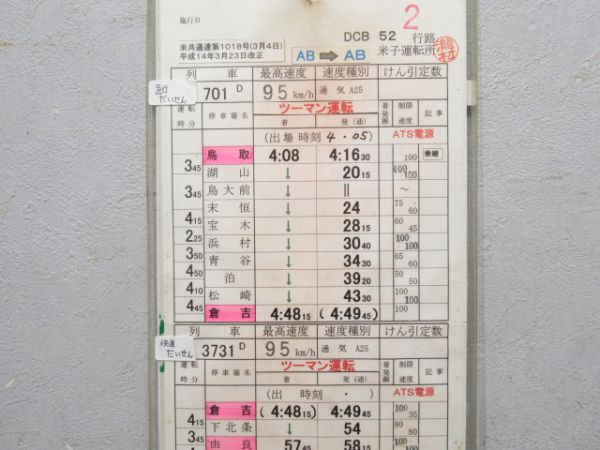 施行日
2
DCB 52 行路
米共通達第1018号(3月4日)
平成14年3月23日改正
AB ➡ AB
米子運転所
列 車 最高速度 速度種別 けん引定数
急行
だいせん
701 D 95 km/h 通気 A25
運転時分 停車場名 ツーマン運転 着発線 制限速度 記事
着 発(通)
(出場時刻 4・05) ATS電源
鳥取 4:08 4:16 30 100 乗継
3 45 湖山 ↓ 20 15 100 100
鳥大前 ↓ || ~
3 45 末恒 ↓ 24 75 60
4 15 宝木 ↓ 28 15 60 45
2 25 浜村 ↓ 30 40 100 100
3 50 青谷 ↓ 34 30 65 60
4 50 泊 ↓ 39 20
4 10 松崎 ↓ 43 30 100
4 45 倉吉 4:48 15 (4:49 45) 100
列 車 最高速度 速度種別 けん引定数
快速
だいせん
3731 D 95 km/h 通気 A25
運転時分 停車場名 ツーマン運転 着発線 制限速度 記事
着 発(通)
(出 時刻 ・ ) ATS電源
倉吉 (4:48 15) 4:49 45 100 35
4 15 下北条 ↓ 54 80 80
3 45 由良 57 45 58 15 100